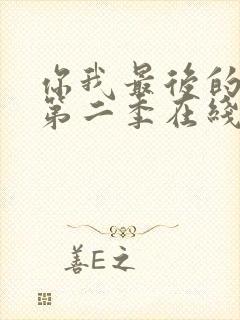 你我最后的
第二季在线
善E之